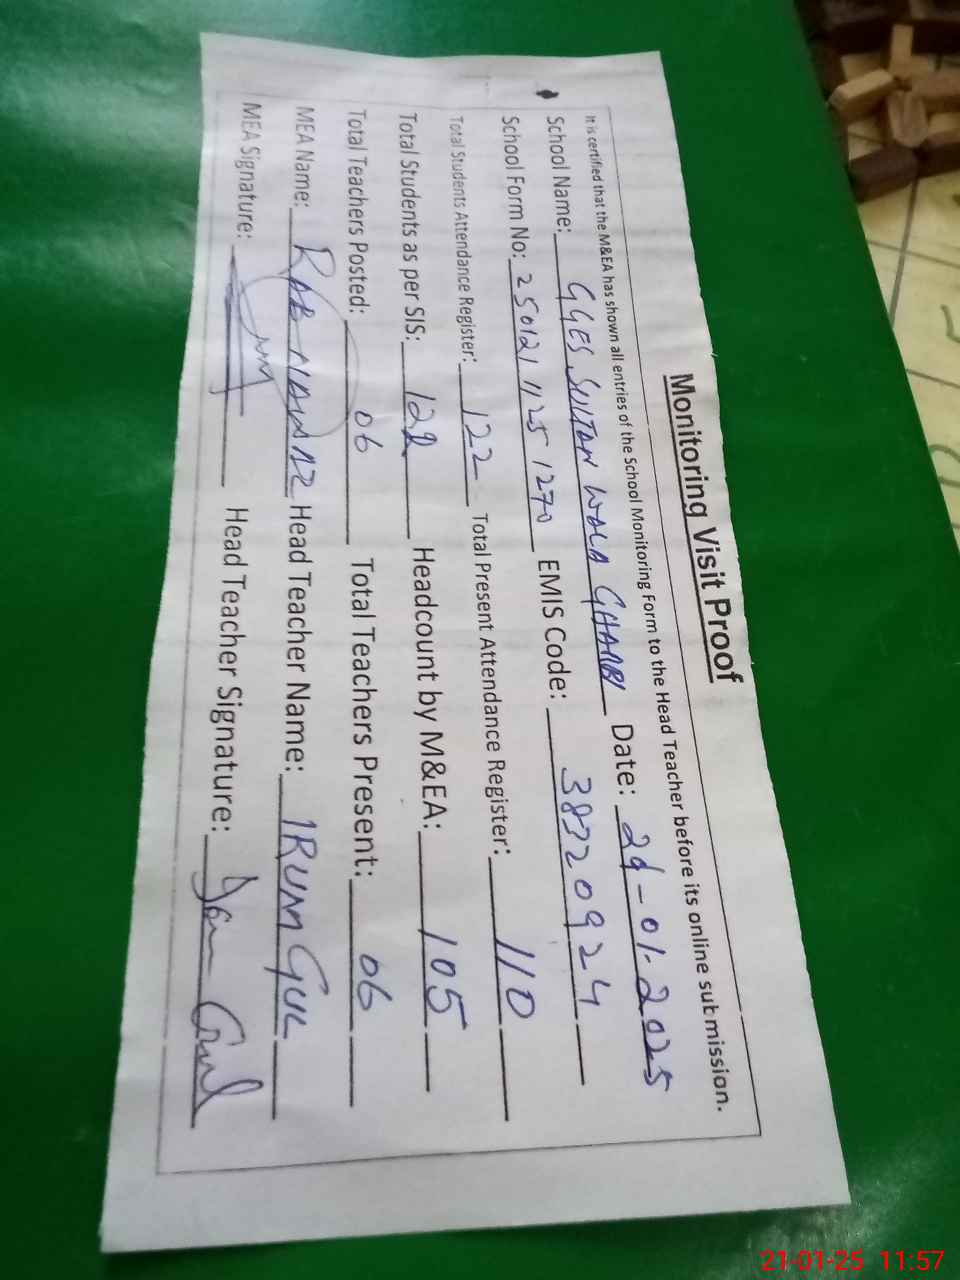 Monitoring Visit Proof
It is certified that the M&EA has shown all entries of the School Monitoring Form to the Head Teacher before its online submission.
School Name: GGES SULTAN WALA GHARBI Date: 21-01-2025
School Form No: 250121 1125 1270 EMIS Code: 38320924
Total Students Attendance Register: 122 Total Present Attendance Register: 110
Total Students as per SIS: 122 Headcount by M&EA: 105
Total Teachers Posted: 06 Total Teachers Present: 06
MEA Name: RAB NAWAZ Head Teacher Name: IRUM GUL
MEA Signature: Head Teacher Signature: Gul
21-01-25 11:57